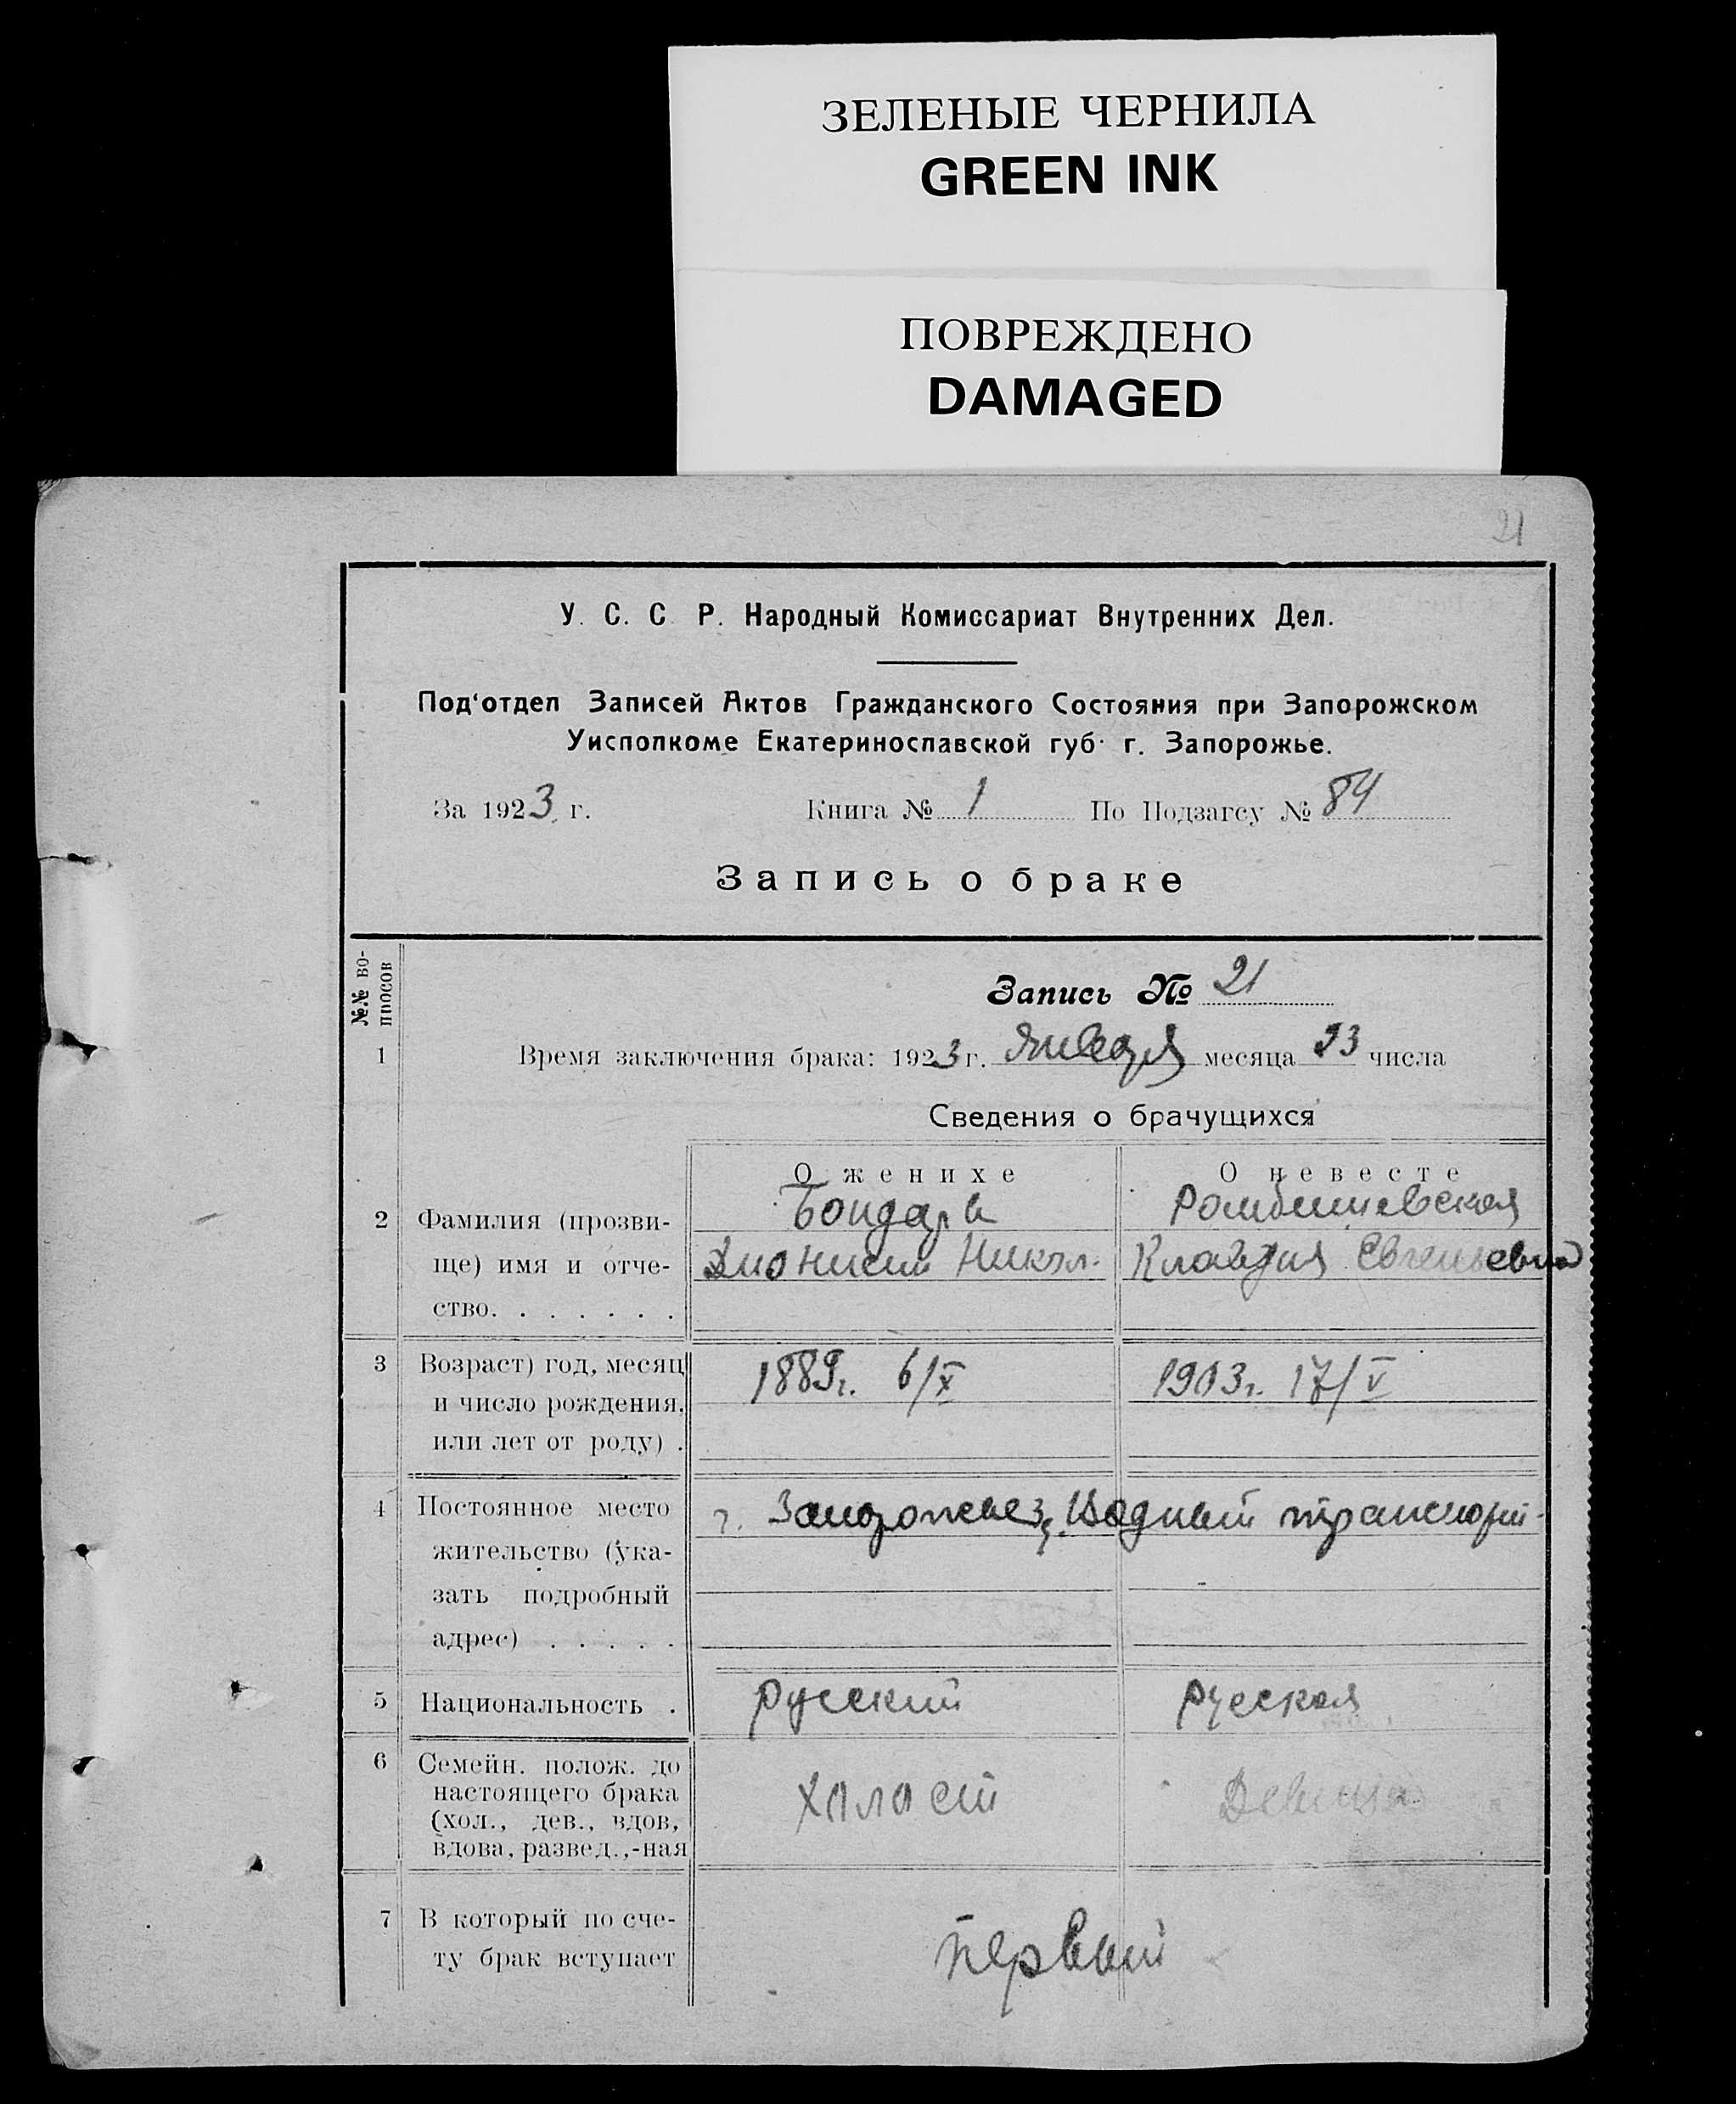 ЗЕЛЕНЫЕ ЧЕРНИЛА
GREEN INK
ПОВРЕЖДЕНО
DAMAGED
21
У. С. С Р. Народный Комиссариат Внутренних Дел.
Под‘отдел Записей Актов Гражданского Состояния при Запорожском
Уисполкоме Екатеринославской губ. г. Запорожье.
За 1923 г. Книга № 1 По Подзагсу № 84
Запись о браке
№№ во-
просов
Запись № 21
1 Время заключения брака: 1923 г. января месяца 23 числа
Сведения о брачущихся
О женихе О невесте
Бондарь Ромбишевская
2 Фамилия (прозви-
ще) имя и отче- Дионисий Никол. Клавдия Евгеньевна
ство. . . . . . .
3 Возраст) год, месяц 1889г. 6/X 1903г. 17/V
и число рождения.
или лет от роду) .
4 Постоянное место г. Запорожье, Водный транспорт
жительство (ука-
зать подробный
адрес) . . . . .
5 Национальность . русский русская
6 Семейн. полож. до
настоящего брака холост Девица
(хол., дев., вдов,
вдова, развед.,-ная
7 В который по сче-
ту брак вступает первый